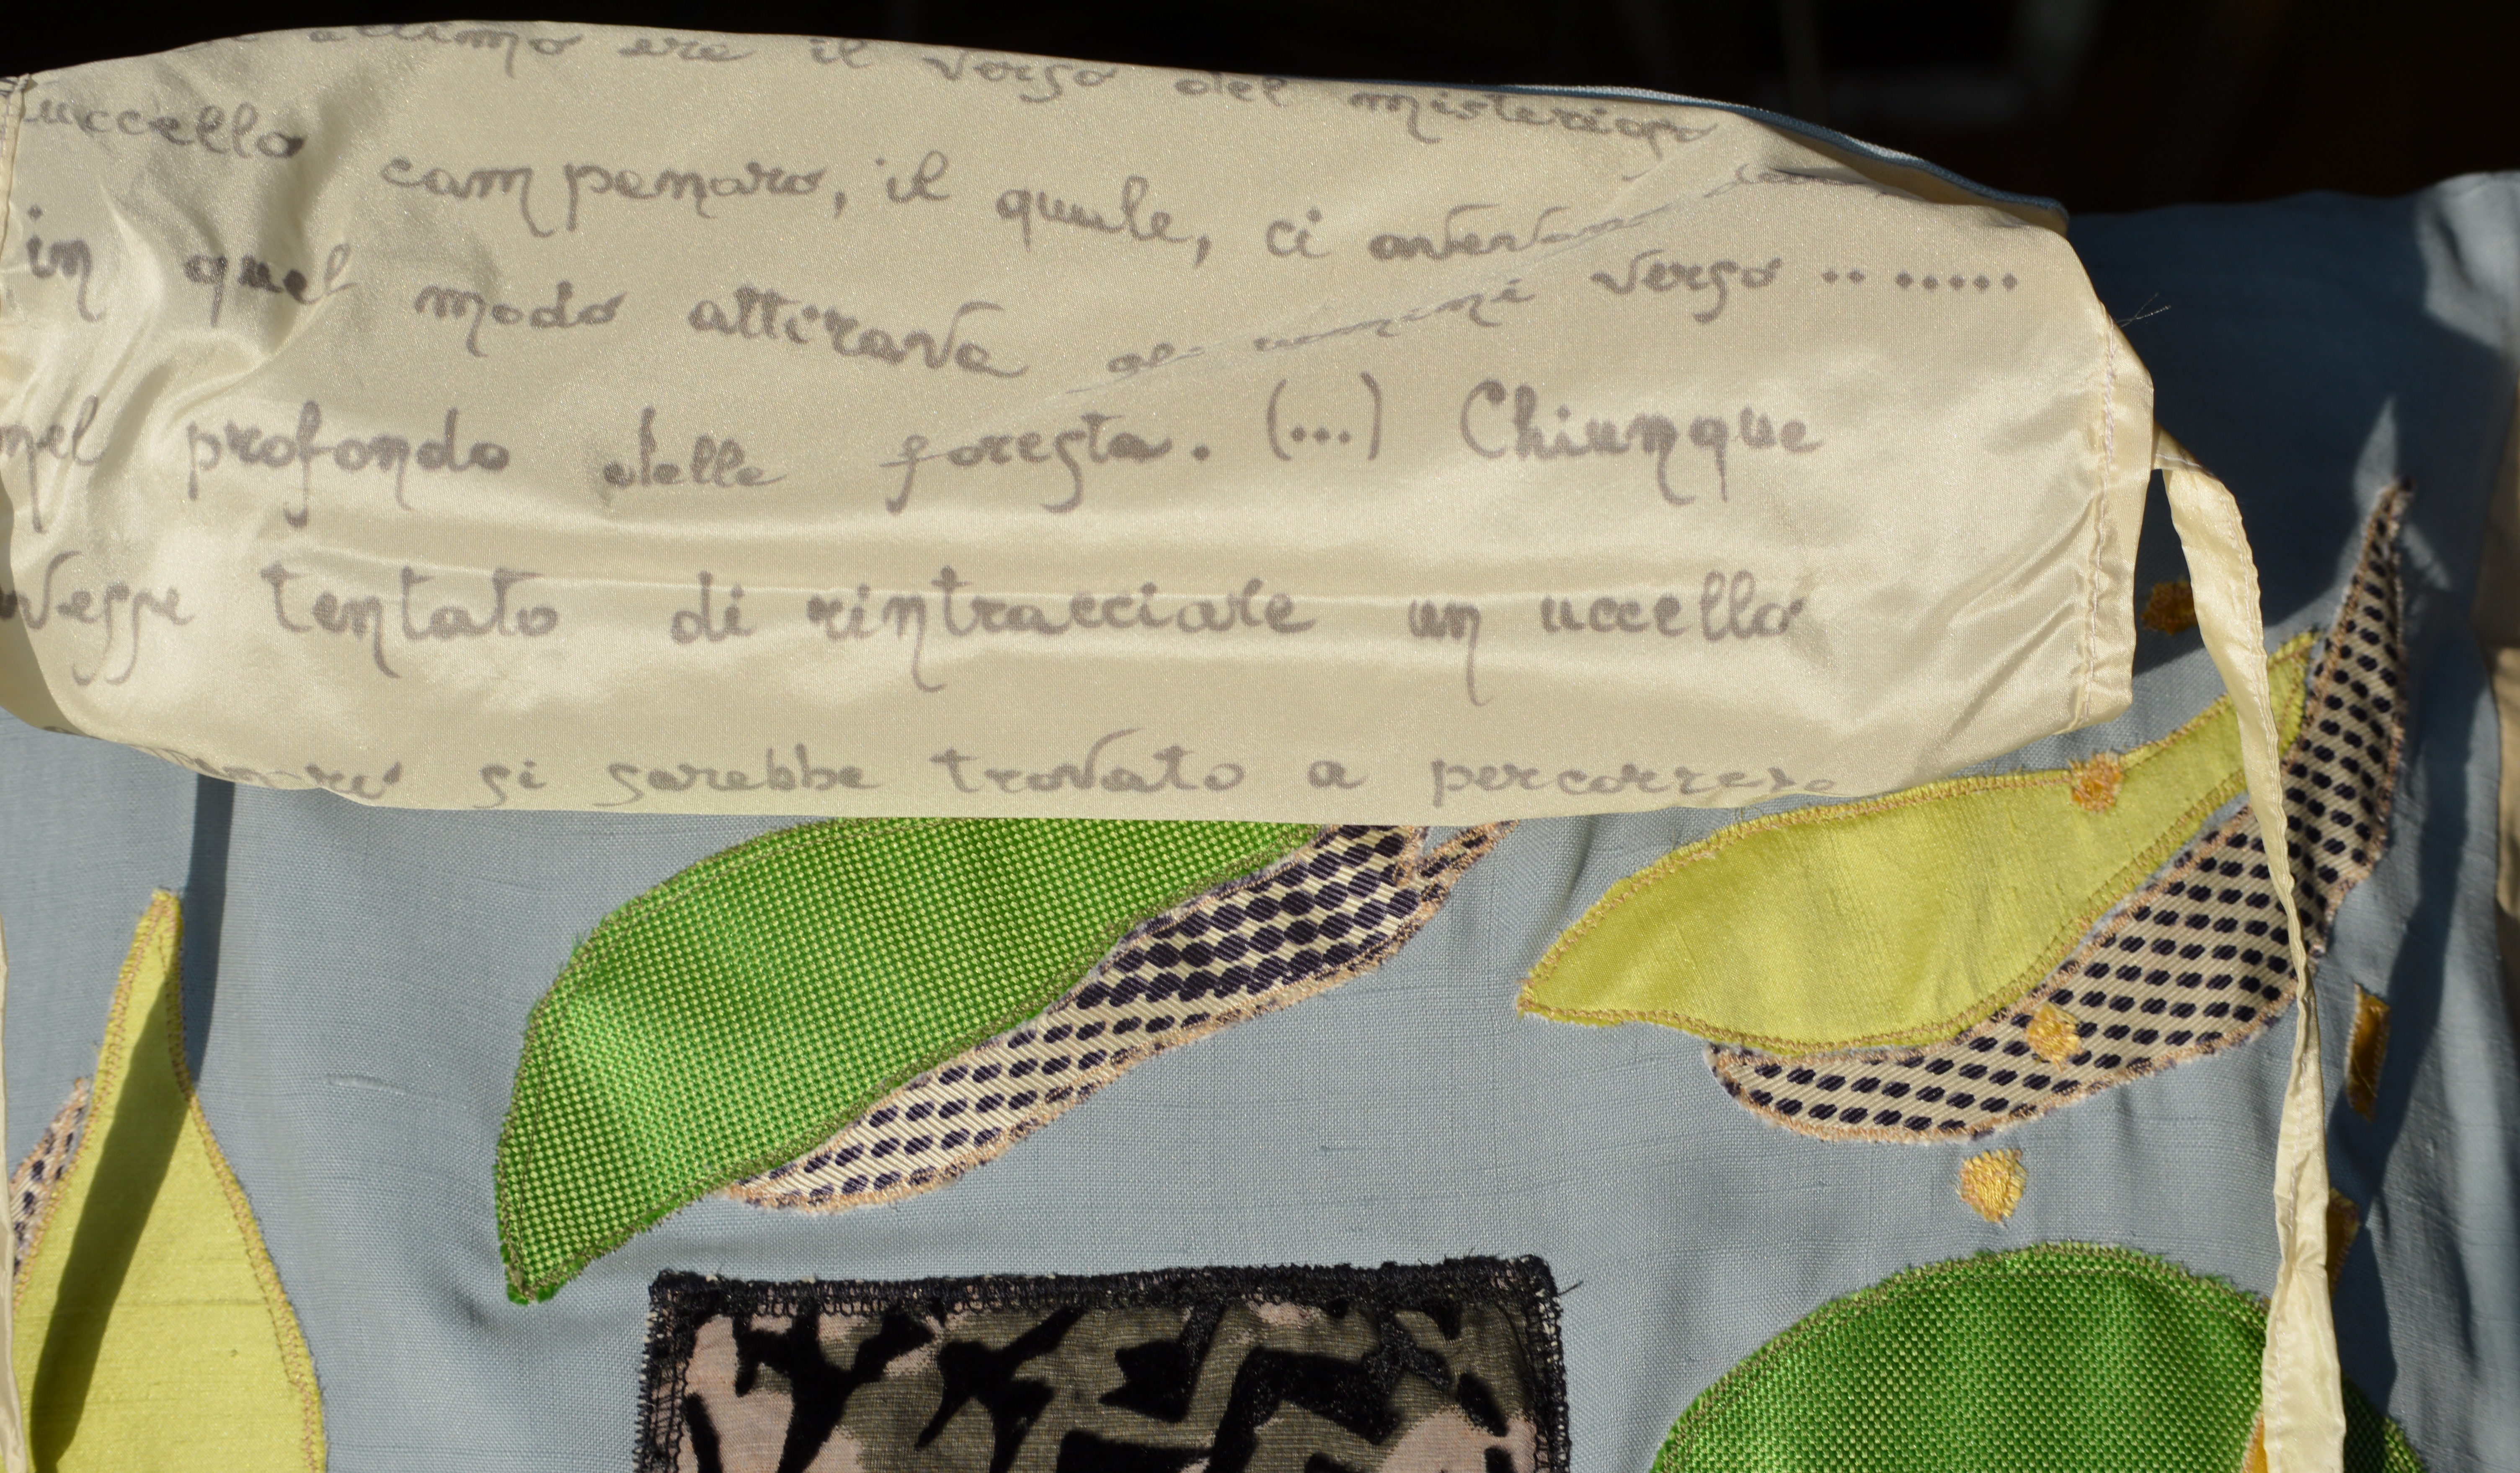 attimo ere il verso del misterioso
uccello campanaro, il quale, ci avevan
in quel modo attirava gli uomini verso .. .....
nel profondo delle foresta. (...) Chiunque
avesse tentato di rintracciare un uccello
si sarebbe trovato a percorrere